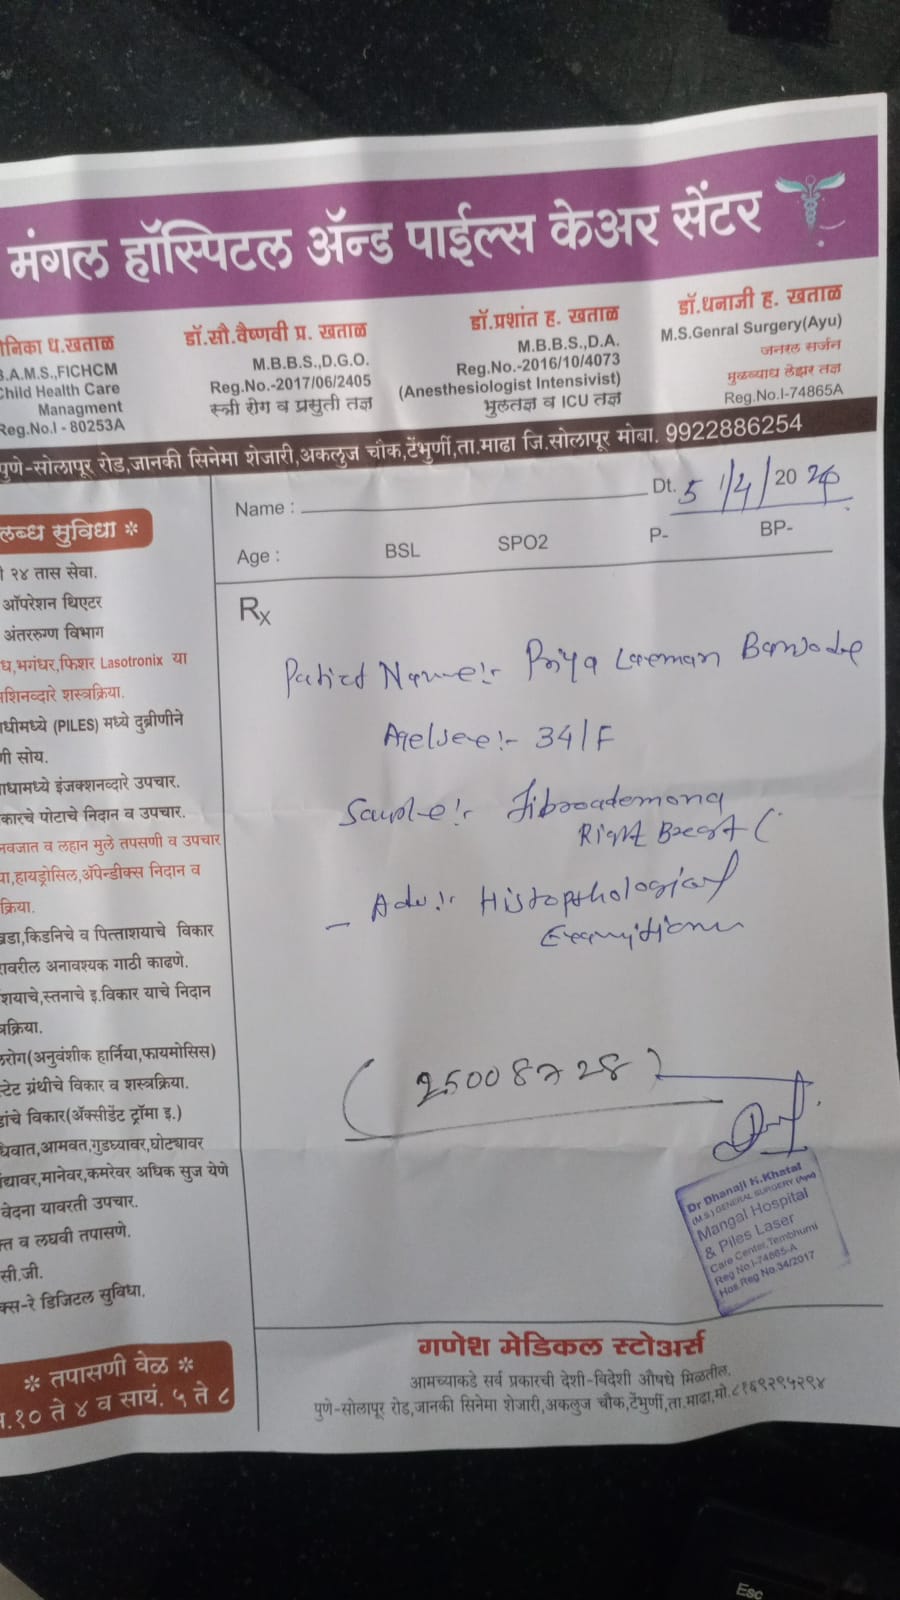 मंगल हॉस्पिटल ॲन्ड पाईल्स केअर सेंटर
निका ध.खताळ
B.A.M.S.,FICHCM
Child Health Care
Managment
Reg.No.I - 80253A
डॉ.सौ.वैष्णवी प्र. खताळ
M.B.B.S.,D.G.O.
Reg.No.-2017/06/2405
स्त्री रोग व प्रसुती तज्ञ
डॉ.प्रशांत ह. खताळ
M.B.B.S.,D.A.
Reg.No.-2016/10/4073
(Anesthesiologist Intensivist)
भुलतज्ञ व ICU तज्ञ
डॉ.धनाजी ह. खताळ
M.S.Genral Surgery(Ayu)
जनरल सर्जन
मुळव्याध लेझर तज्ञ
Reg.No.I-74865A
पुणे-सोलापूर रोड,जानकी सिनेमा शेजारी,अकलुज चौक,टेंभुर्णी,ता.माढा जि.सोलापूर मोबा. 9922886254
लब्ध सुविधा *
२४ तास सेवा.
ऑपरेशन थिएटर
अंतररुग्ण विभाग
ध,भगंधर,फिशर Lasotronix या
शिनव्दारे शस्त्रक्रिया.
धीमध्ये (PILES) मध्ये दुब्रीणीने
णी सोय.
ाधामध्ये इंजक्शनव्दारे उपचार.
कारचे पोटाचे निदान व उपचार.
नवजात व लहान मुले तपासणी व उपचार
या,हायड्रोसिल,ॲपेन्डीक्स निदान व
क्रिया.
खडा,किडनिचे व पित्ताशयाचे विकार
रावरील अनावश्यक गाठी काढणे.
शयाचे,स्तनाचे इ.विकार याचे निदान
त्रक्रिया.
रोग(अनुवंशीक हार्निया,फायमोसिस)
स्टेट ग्रंथीचे विकार व शस्त्रक्रिया.
डांचे विकार(ॲक्सीडेंट ट्रॉमा इ.)
धिवात,आमवत,गुडघ्यावर,घोट्यावर
द्यावर,मानेवर,कमरेवर अधिक सुज येणे
वेदना यावरती उपचार.
क्त व लघवी तपासणे.
सी.जी.
क्स-रे डिजिटल सुविधा.
* तपासणी वेळ *
१० ते ४ व सायं. ५ ते ८
Name : Dt. 5/4/20
Age : BSL SPO2 P- BP-
Rx
Patient Name:- Priya Laxman
Age/Sex:- 34/F
Sample:- Fibroademona
Right Breast (
- Adv:- Histopthological
Examitions
(25008728)
Dr Dhanaji H.Khatal
(M.S.) GENERAL SURGERY (Ayu)
Mangal Hospital
& Piles Laser
Care Center,Tembhurni
Reg No.I-74865-A
Hos.Reg No.34/2017
गणेश मेडिकल स्टोअर्स
आमच्याकडे सर्व प्रकारची देशी-विदेशी औषधे मिळतील.
पुणे-सोलापूर रोड,जानकी सिनेमा शेजारी,अकलुज चौक,टेंभुर्णी,ता.माढा,मो.८१६९२९५२९४
Esc